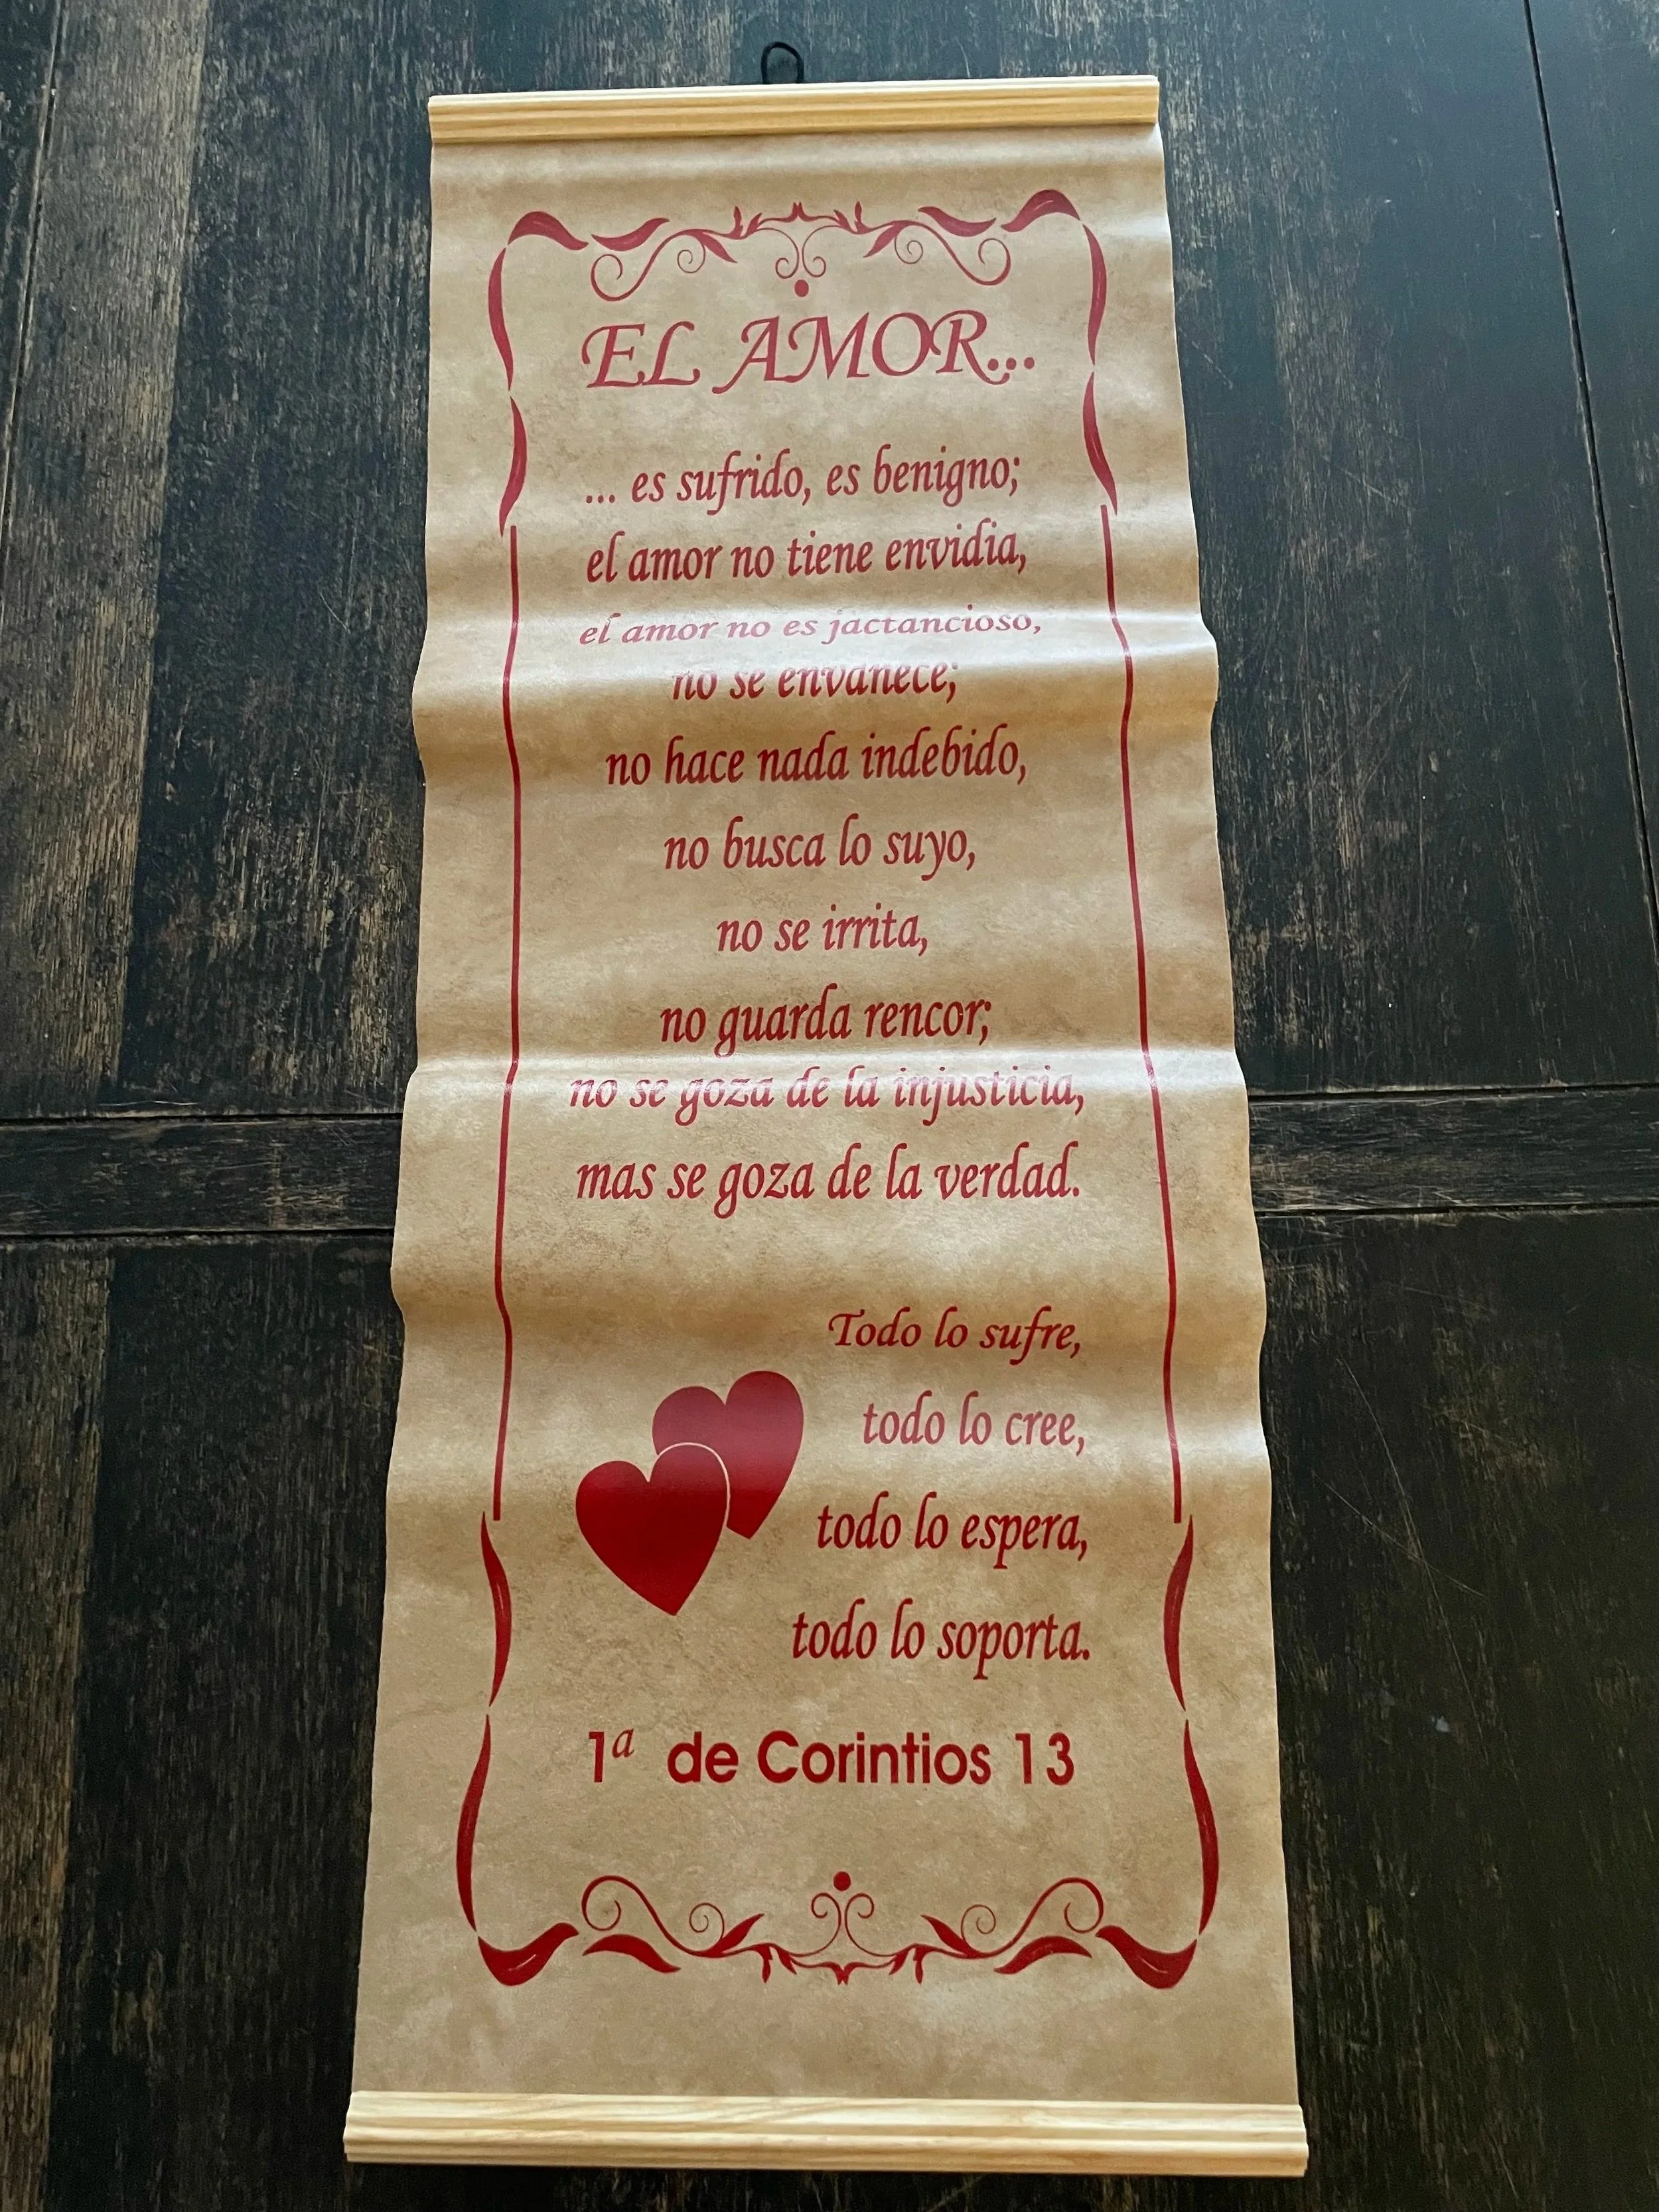 EL AMOR...
... es sufrido, es benigno;
el amor no tiene envidia,
el amor no es jactancioso,
no se envanece;
no hace nada indebido,
no busca lo suyo,
no se irrita,
no guarda rencor;
no se goza de la injusticia,
mas se goza de la verdad.
Todo lo sufre,
todo lo cree,
todo lo espera,
todo lo soporta.
1ª de Corintios 13